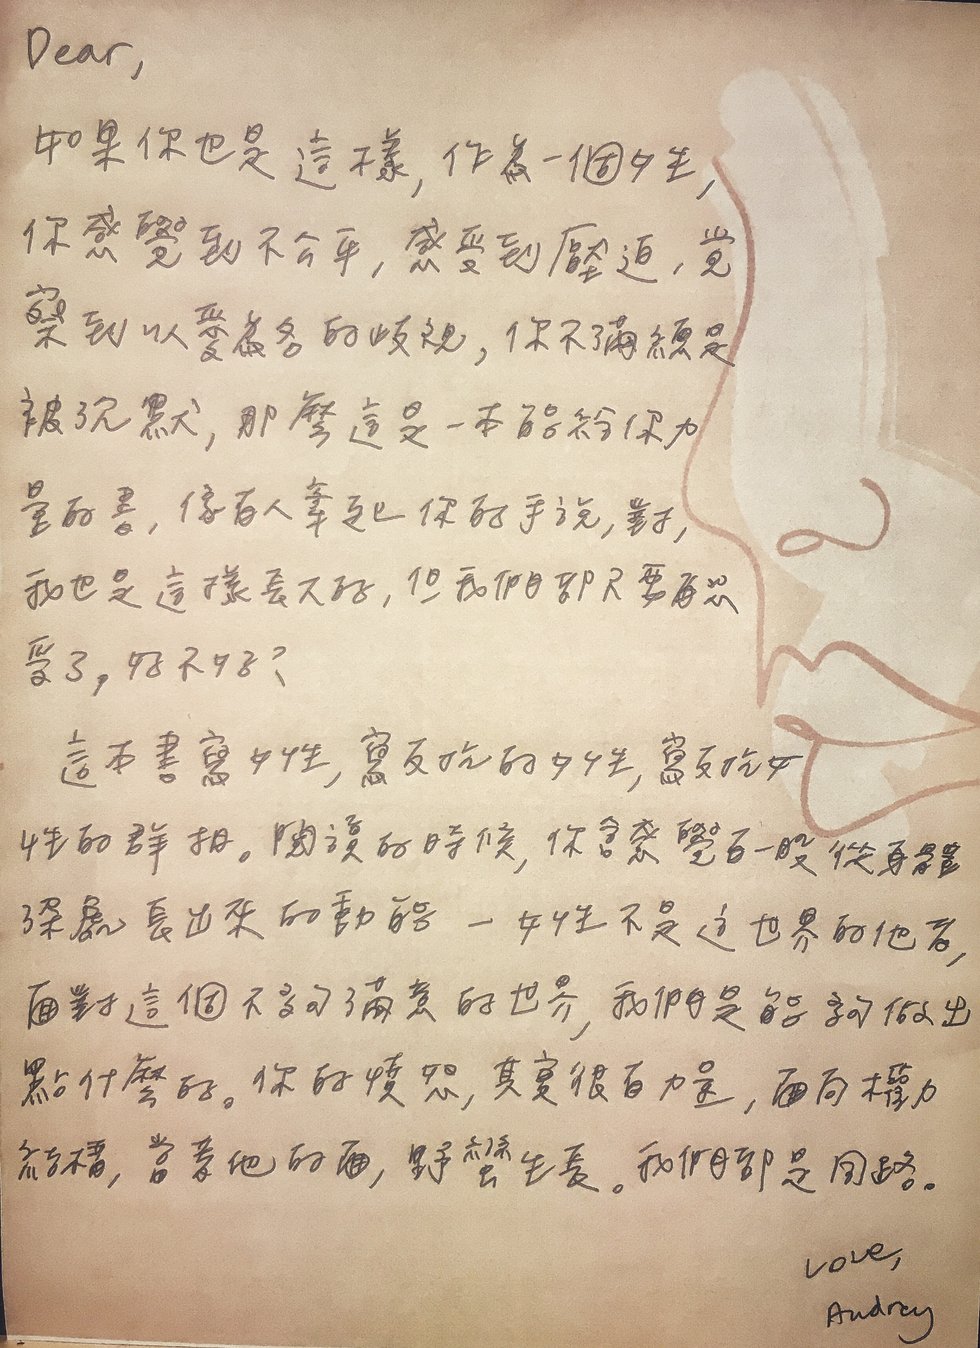 Dear,
如果你也是這樣,作為一個女生,
你感覺到不公平,感受到壓迫,覺
察到以愛為名的歧視,你不滿總是
被沉默,那麼這是一本能給你力
量的書,像有人牽起你的手說,對,
我也是這樣長大的,但我們都不要再忍
受了,好不好?
這本書寫女性,寫反抗的女性,寫反抗女
性的群相。閱讀的時候,你會感覺有一股從身體
深處長出來的動能-女性不是這世界的他者,
面對這個不夠滿意的世界,我們是能夠做出
點什麼的。你的憤怒,其實很有力量,面向權力
結構,當著他的面,野蠻生長。我們都是同路。
Love,
Audrey